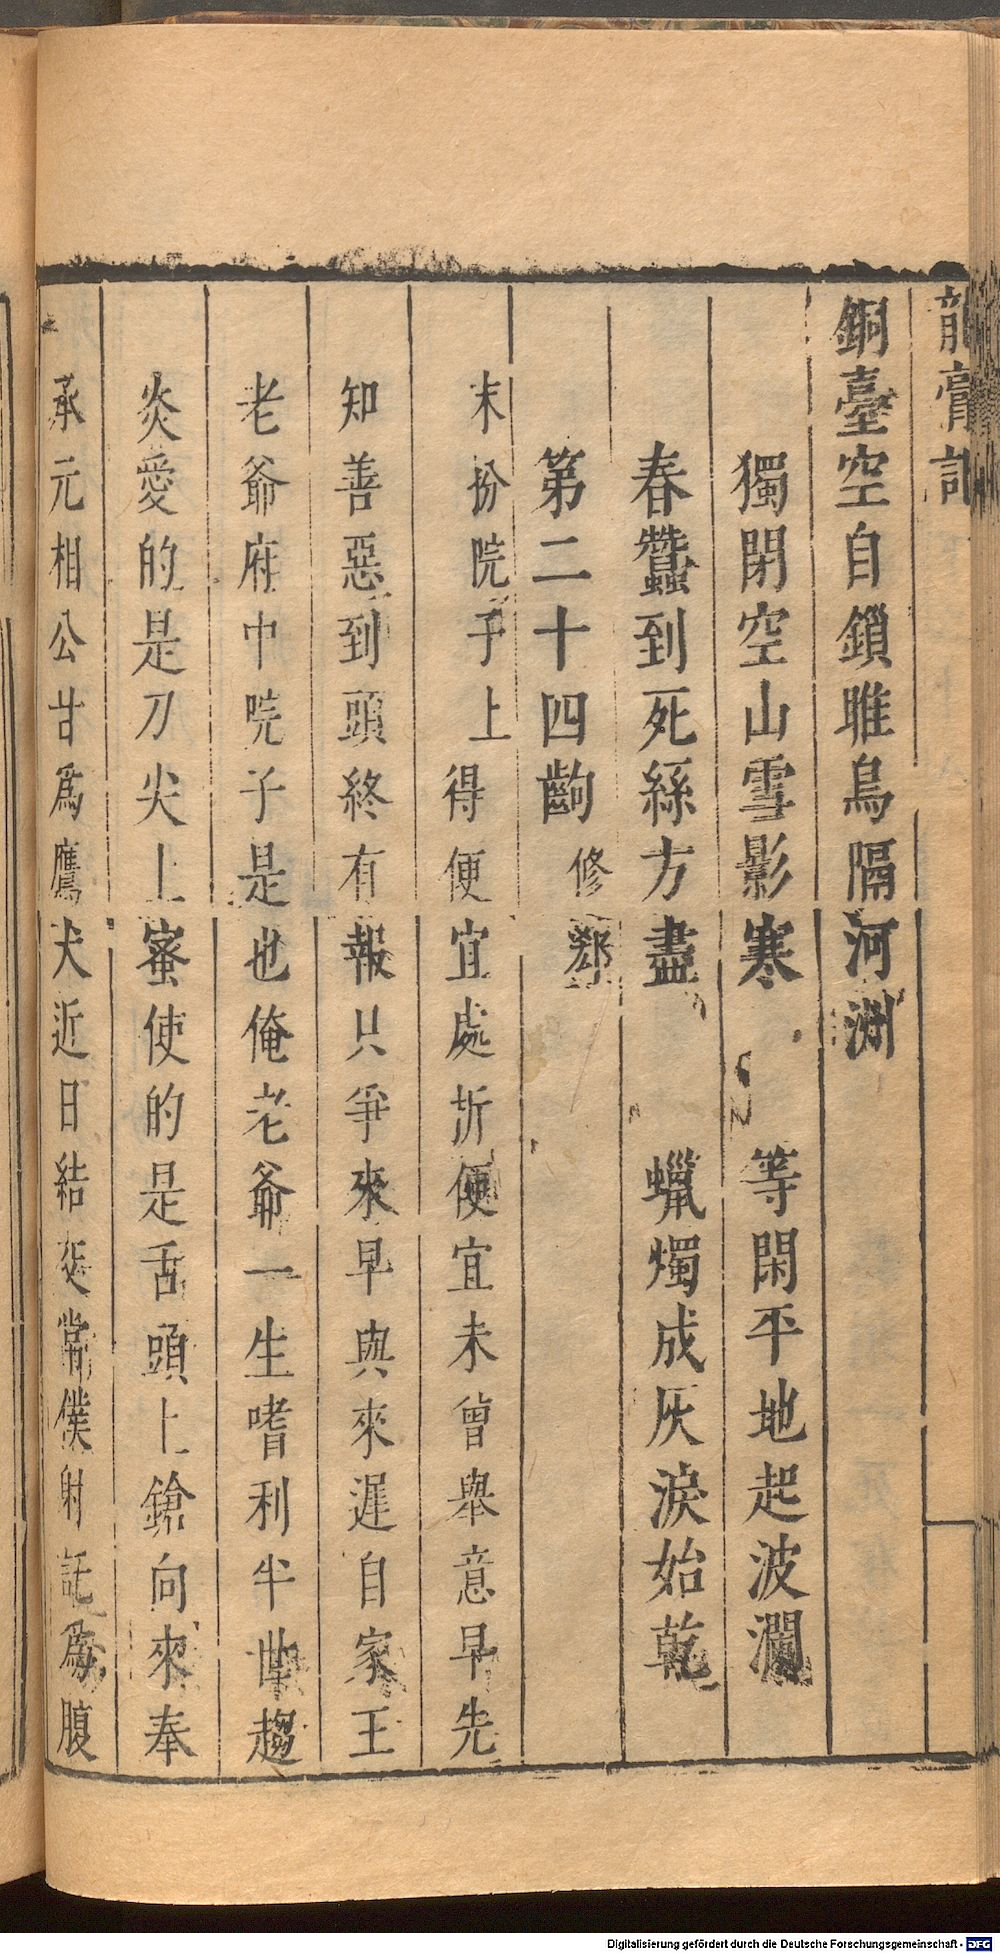 龍膏記
銅臺空自鎖雎鳥隔河洲
獨閉空山雪影寒　等閑平地起波瀾
春蠶到死絲方盡　蠟燭成灰淚始乾
第二十四齣　修郄
末扮院子上得便宜處折便宜未曾舉意早先
知善惡到頭終有報只爭來早與來遲自家王
老爺府中院子是也俺老爺一生嗜利半世趨
炎愛的是刀尖上蜜使的是舌頭上鎗向來奉
承元相公甘爲鷹犬近日結交常僕射託爲腹
Digitalisierung gefördert durch die Deutsche Forschungsgemeinschaft - DFG